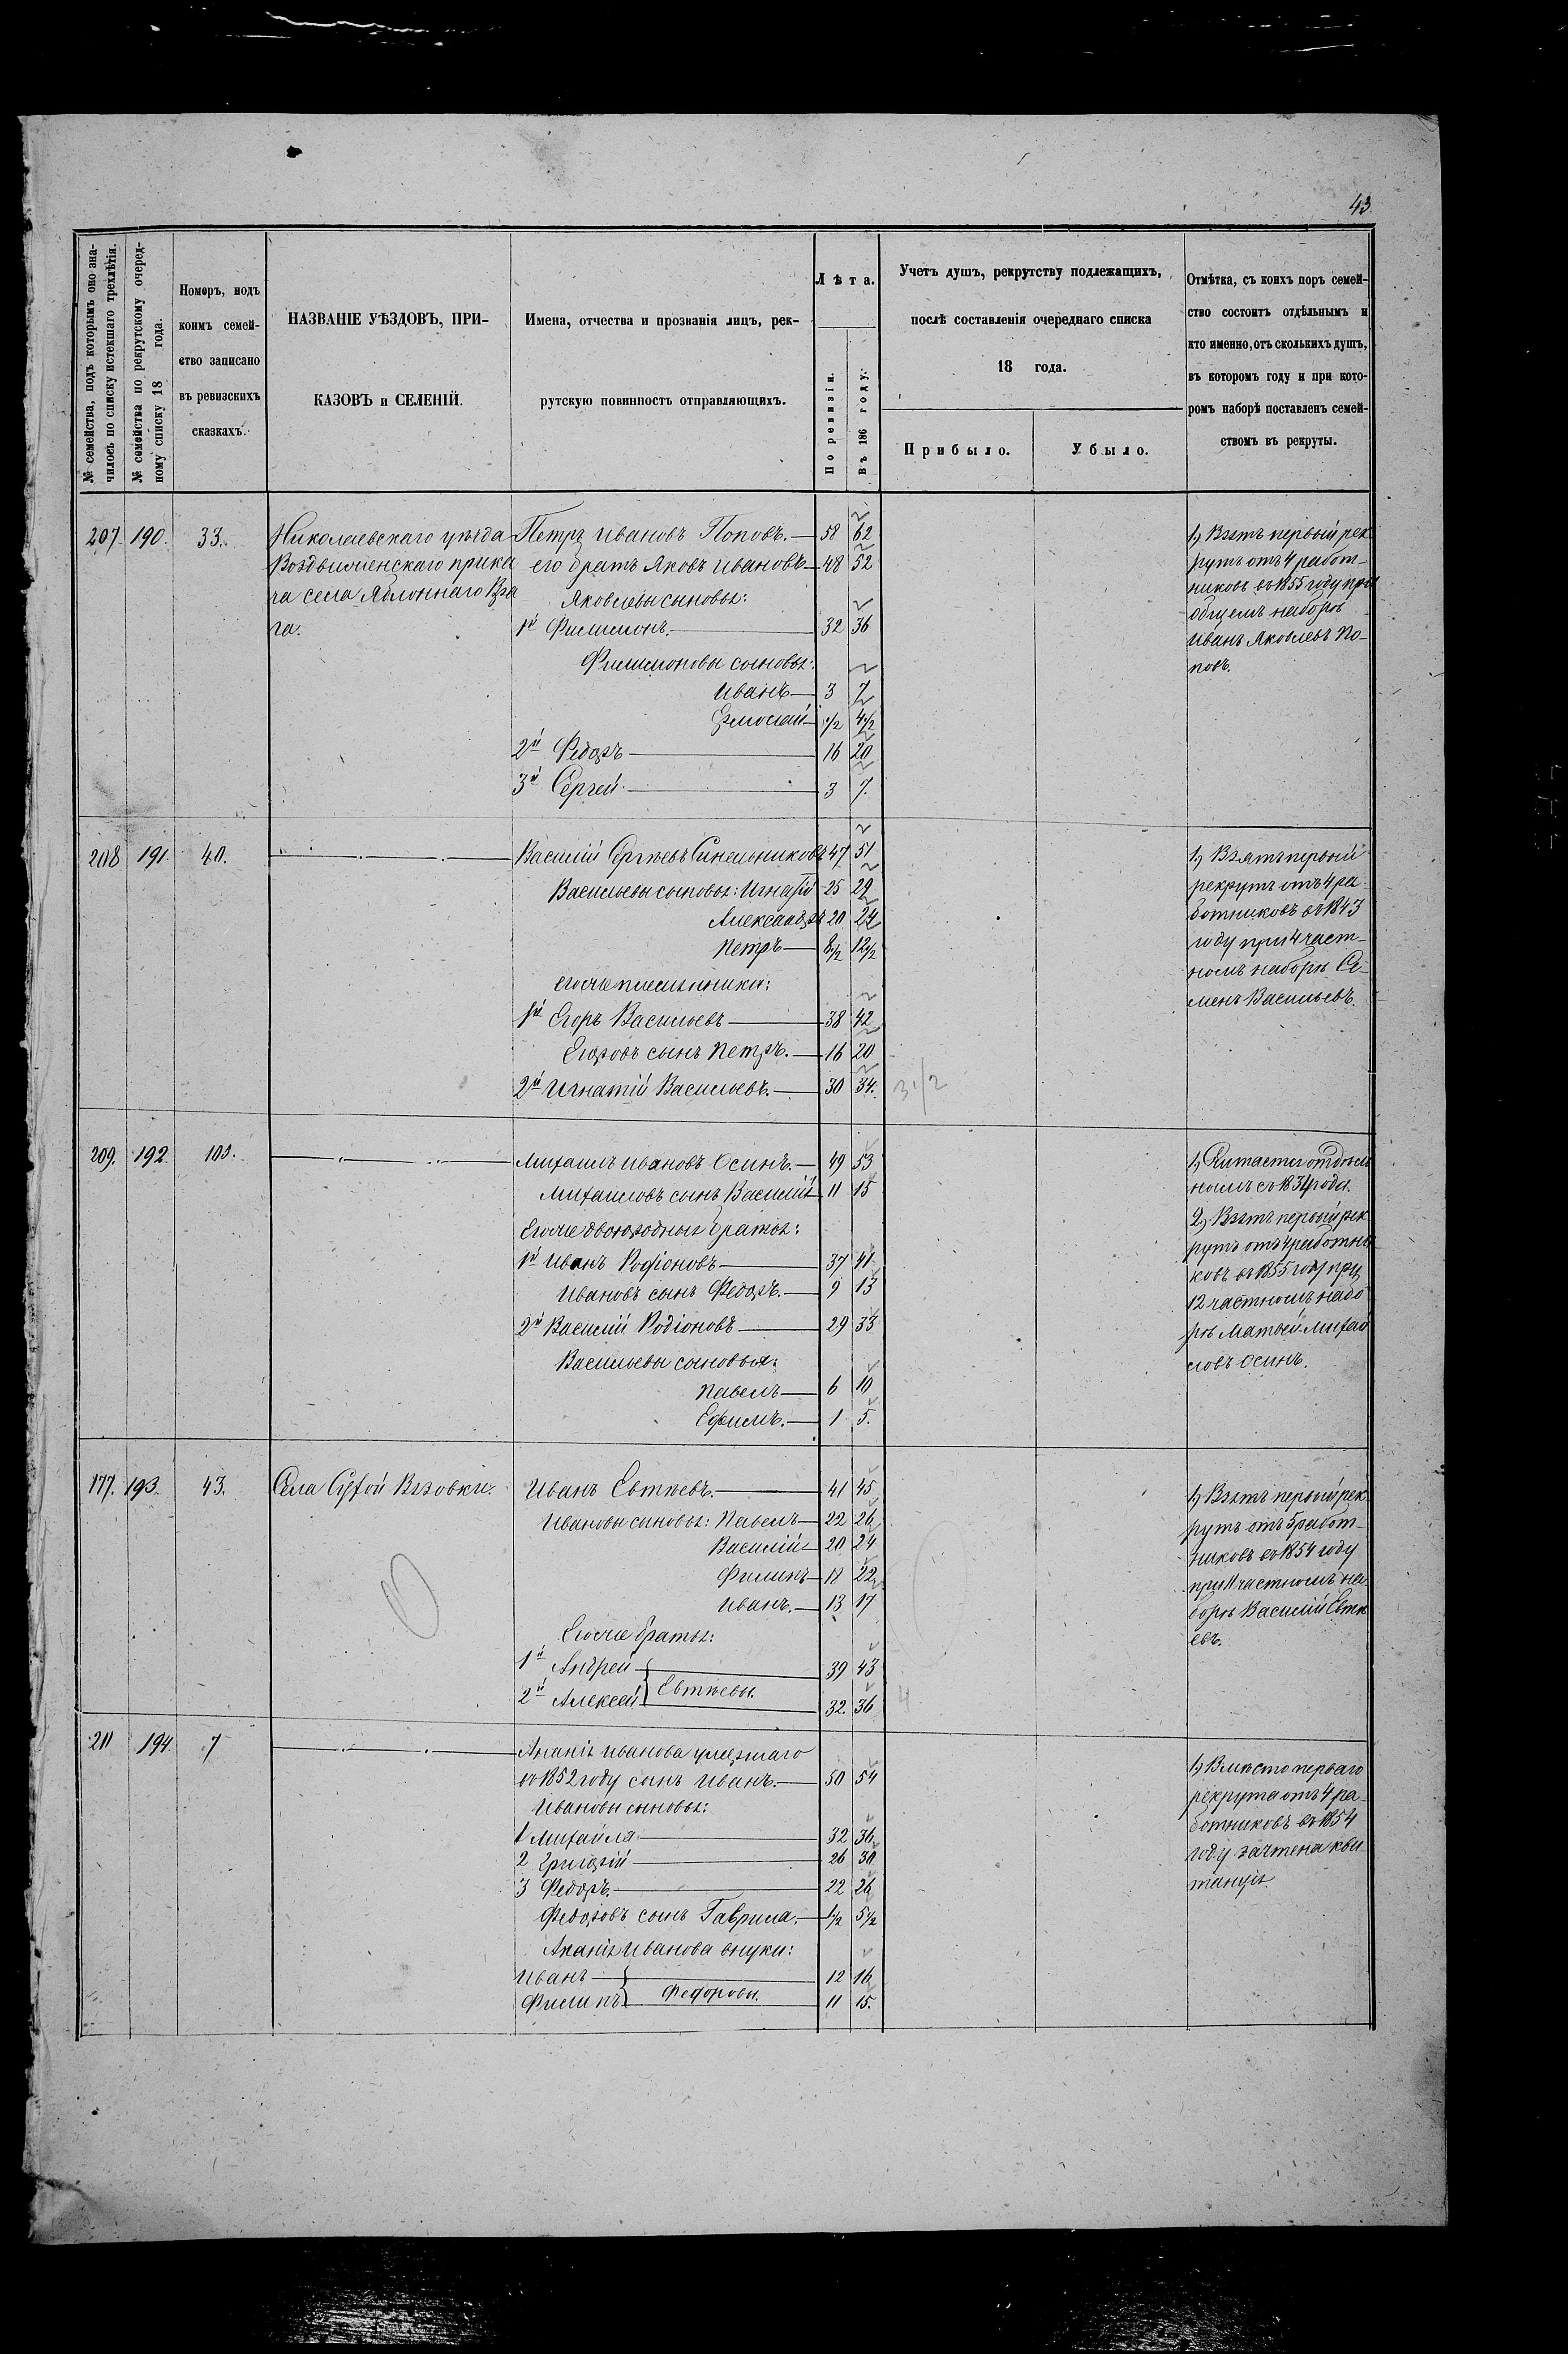 43
№ семейства, подъ которымъ оно зна-
чилось по списку истекшаго трехлѣтія.
№ семейства по рекрутскому очеред-
ному списку 18 года.
Номеръ, подъ
коимъ семей-
ство записано
въ ревизскихъ
сказкахъ.
НАЗВАНІЕ УѢЗДОВЪ, ПРИ-
КАЗОВЪ и СЕЛЕНІЙ.
Имена, отчества и прозванія лицъ, рек-
рутскую повинность отправляющихъ.
Лѣта.
По ревизіи.
Въ 186 году.
Учетъ душъ, рекрутству подлежащихъ,
послѣ составленія очереднаго списка
18 года.
Прибыло.
Убыло.
Отмѣтка, съ коихъ поръ семей-
ство состоитъ отдѣльнымъ и
кто именно, отъ сколькихъ душъ,
въ которомъ году и при кото-
ромъ наборѣ поставленъ семей-
ствомъ въ рекруты.
207 190. 33.
Николаевскаго уѣзда
Воздвиженскаго прика
за села Яблоннаго Вра
га.
Петръ Ивановъ Поповъ. 58 62
его братъ Яковъ Ивановъ 48 52
Яковлевы сыновья:
1й Филимонъ. 32 36
Филимоновы сыновья:
Иванъ 3 7
Ермолай 1/2 4 1/2
2й Федоръ 16 20
3й Сергей 3 7.
1, Взятъ первый рек
рутъ отъ 4 работ-
никовъ въ 1855 году при
общемъ наборѣ
Иванъ Яковлевъ По-
повъ.
208 191. 40.
Василій Сергѣевъ Синельниковъ 47 51
Васильевы сыновья: Игнатій 25 29
Александръ 20 24
Петръ 8 1/2 12 1/2
его же племянники:
1й Егоръ Васильевъ 38 42
Егоровъ сынъ Петръ. 16 20
2й Игнатій Васильевъ. 30 34. 3 1/2
1, Взятъ первый
рекрутъ отъ 4 ра-
ботниковъ въ 1843
году при 4 част-
номъ наборѣ Се-
менъ Васильевъ.
209. 192. 103.
Михаилъ Ивановъ Осинъ. 49 53
Михаиловъ сынъ Василій 11 15
Его же двоюродныя братья:
1й Иванъ Родіоновъ 37 41
Ивановъ сынъ Федоръ. 9 13
2й Василій Родіоновъ 29 33
Васильевы сыновья:
Павелъ 6 10
Ефимъ. 1 5.
1, Считается отдѣль
нымъ съ 1834 года.
2, Взятъ первый рек
рутъ отъ 4 работни
ковъ въ 1855 году при
12 частномъ набо
рѣ Матвей Михай
ловъ Осинъ.
177. 193. 43.
Села Сухой Вязовки.
Иванъ Евтѣевъ. 41 45
Ивановы сыновья: Павелъ 22 26
Василій 20 24
Филипъ 18 22
Иванъ. 13 17
Его же братья:
1й Андрей 39 43
Евтѣевы.
2й Алексей 32. 36 4
1, Взятъ первый рек
рутъ отъ 5 работ-
никовъ въ 1854 году
при 11 частномъ на-
борѣ Василій Евтѣ
евъ.
211 194. 7
Ананія Иванова умершаго
въ 1852 году сынъ Иванъ. 50 54
Ивановы сыновья:
1 Михайла 32 36
2 Григорій 26 30
3 Федоръ. 22 26
Федоровъ сынъ Гаврила. 1 1/2 5 1/2
Ананія Иванова внуки:
Иванъ 12 16
Федоровы.
Филипъ 11 15.
1, Вмѣсто перваго
рекрута отъ 4 ра-
ботниковъ въ 1854
году зачтена кви
танція.